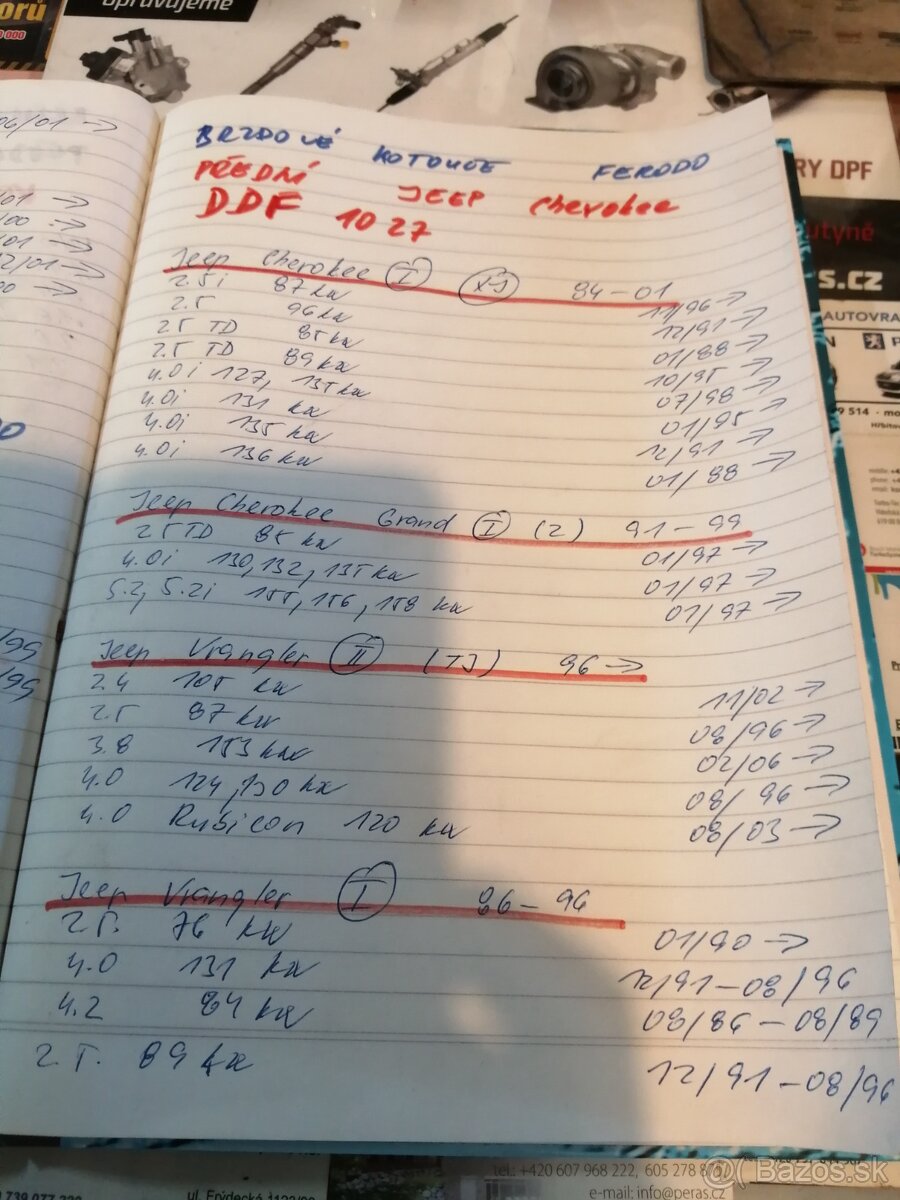 opravujeme
orů
0 000
RY DPF
utyně
s.cz
AUTOVRA
9 514 · mo
06/01 →
BRZDOVÉ KOTOUČE FERODO
PŘEDNÍ JEEP Cherokee
DDF 1027
Jeep Cherokee I XJ 84-01
2.5i 87 kw 11/96 →
2.5 96 kw 12/91 →
2.5 TD 85 kw 01/88 →
2.5 TD 89 kw 10/95 →
4.0i 127, 135 kw 07/98 →
4.0i 131 kw 01/95 →
4.0i 135 kw 12/91 →
4.0i 136 kw 01/88 →
Jeep Cherokee Grand I (Z) 91-99
2.5 TD 85 kw 01/97 →
4.0i 130, 132, 135 kw 01/97 →
5.2, 5.2i 155, 156, 158 kw 01/97 →
Jeep Vrangler II (TJ) 96 →
2.4 105 kw 11/02 →
2.5 87 kw 08/96 →
3.8 153 kw 02/06 →
4.0 124, 130 kw 08/96 →
4.0 Rubicon 120 kw 08/03 →
Jeep Vrangler I 86-96
2.5. 76 kw 01/90 →
4.0 131 kw 12/91-08/96
4.2 84 kw 08/86-08/89
2.5. 89 kw 12/91-08/96
tel.: +420 607 968 222, 605 278 873
e-mail: info@peras.cz
739 077 220
ul. Frýdecká
Bazos.sk